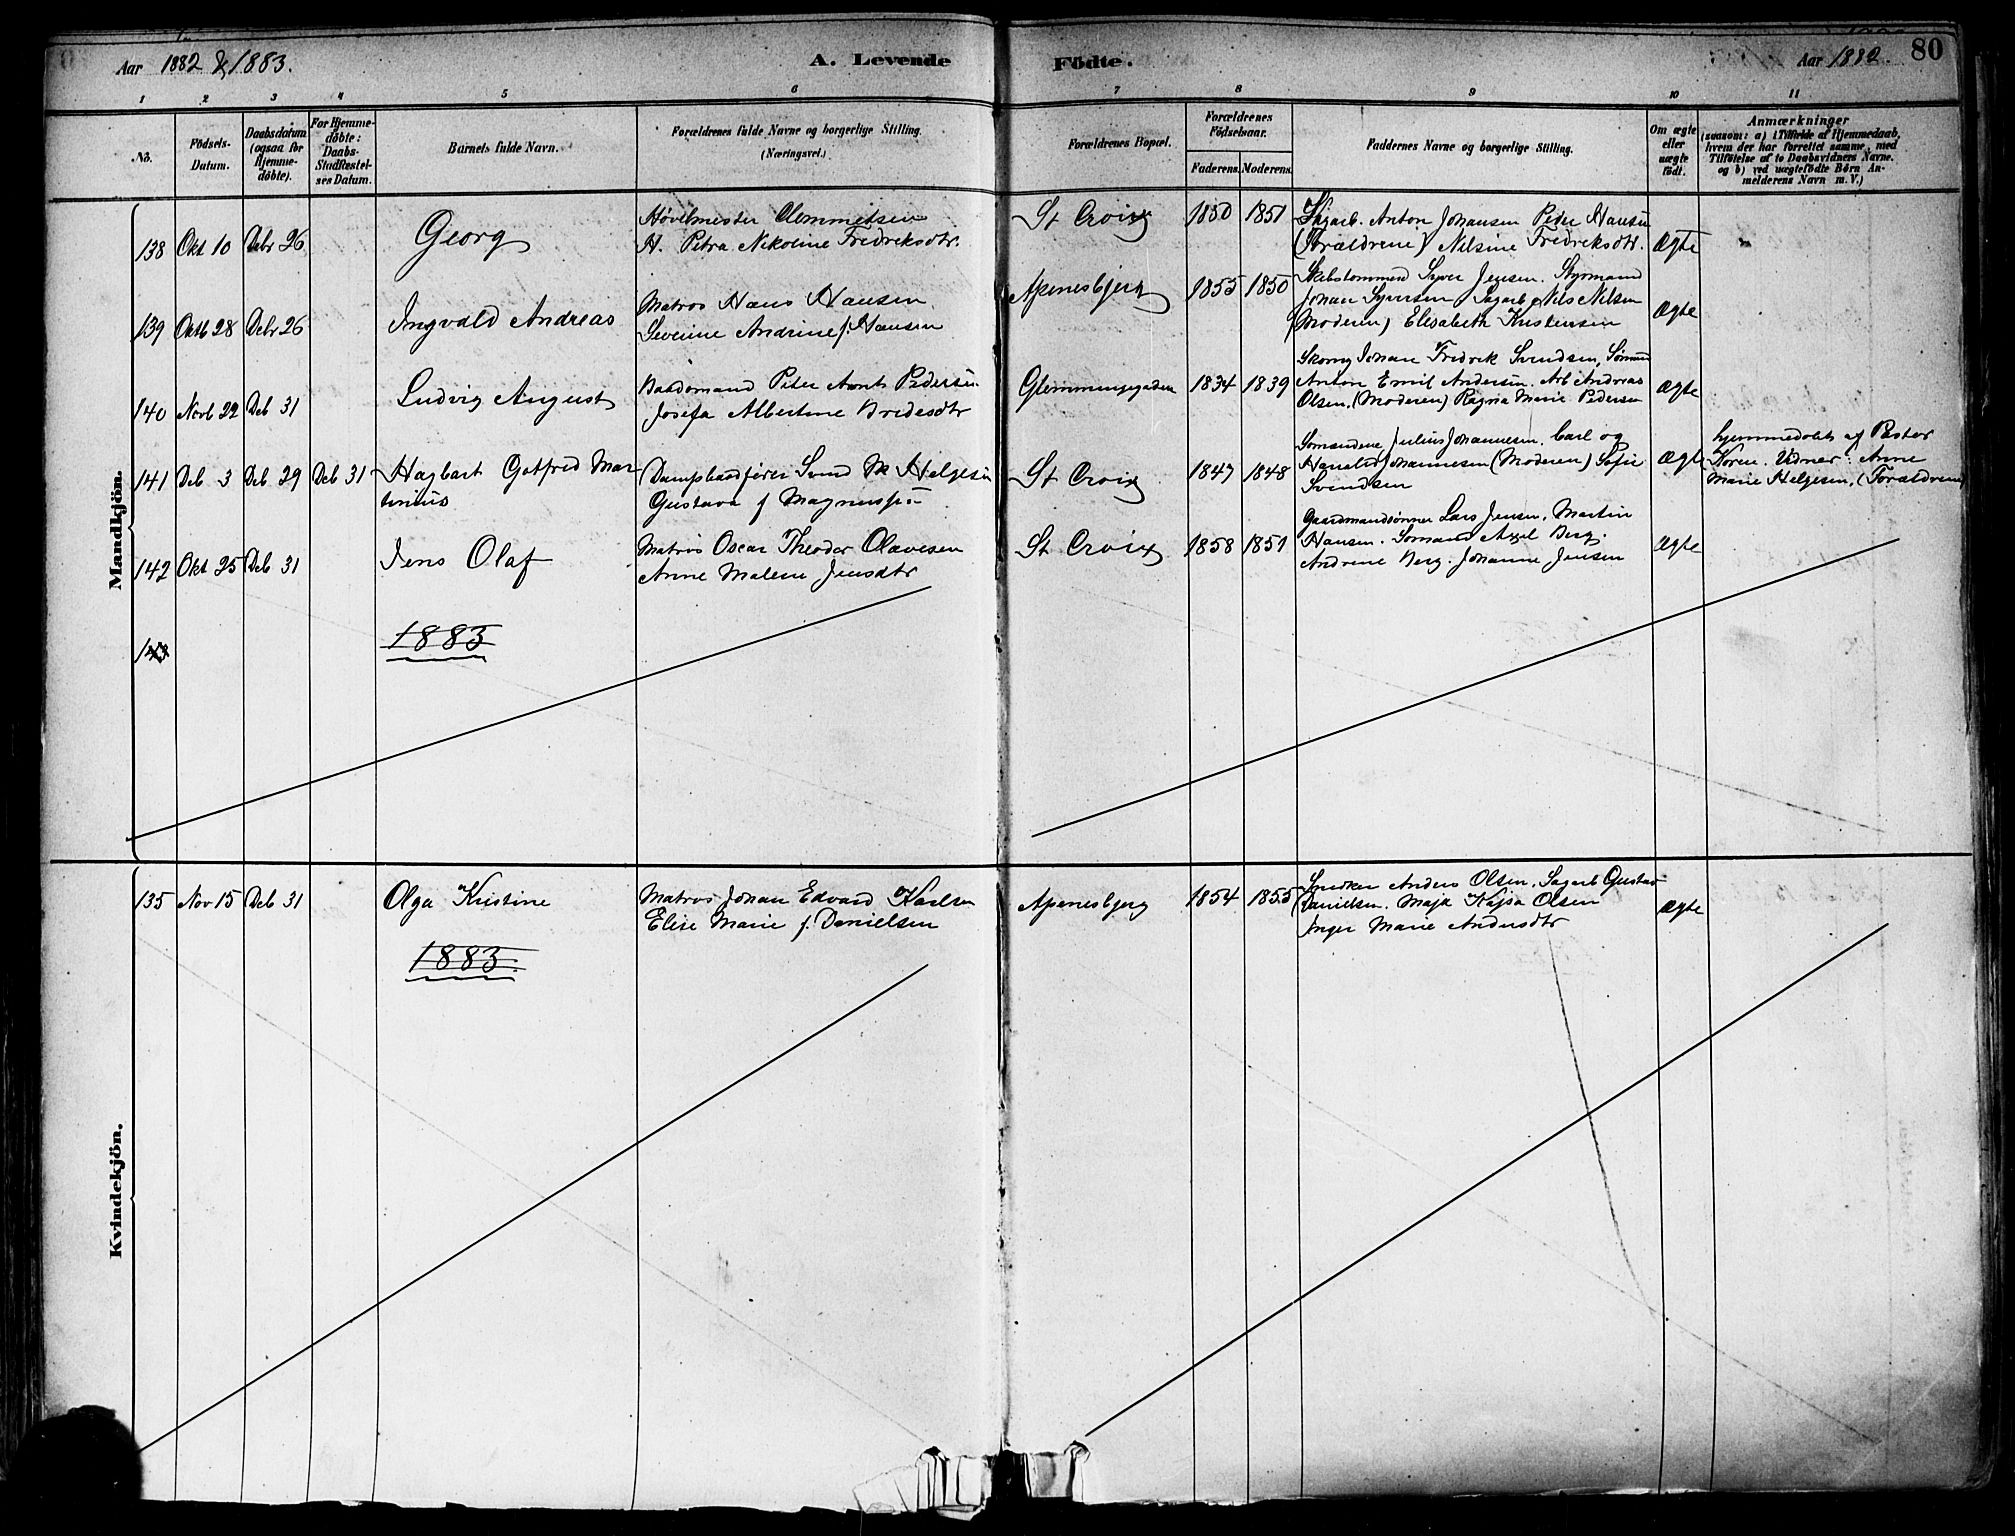 Aar 1882 & 1883.
A. Levende Födte.
Aar 1882. 80
1 2 3 4 5 6 7 8 9 10 11
No.
Födsels-
Datum.
Daabsdatum
(ogsaa for
Hjemme-
döbte).
For Hjemme-
döbte:
Daabs-
Stadfæstel-
ses Datum.
Barnets fulde Navn.
Forældrenes fulde Navne og borgerlige Stilling.
(Næringsvei.)
Forældrenes Bopæl.
Forældrenes
Födselsaar.
Faderens. Moderens.
Faddernes Navne og borgerlige Stilling.
Om ægte
eller
uægte
födt.
Anmærkninger
(saasom: a) i Tilfælde af Hjemmedaab,
hvem der har forrettet samme, med
Tilföielse af to Daabsvidners Navne.
og b) ved uægtefödte Börn An-
melderens Navn m. V.)
Mandkjön.
138 Okt 10 Debr 26
Georg
Høvelmester Clemmetsen
H. Petra Nikoline Fredriksdtr.
St Croix
1850 1851
Sagarb. Anton Johansen Peder Hansen
(Forældrene) Nilsine Fredriksdtr.
Ægte
139 Oktb 28 Debr 26
Ingvald Andreas
Matros Hans Hansen
Severine Andrine f. Hansen
Apenesbjerg
1855 1850
Skibstømmerm Syver Jensen. Styrmand
Johan Syversen Sagarb Nils Nilsen
(Moderen) Elisabeth Kristensen
Ægte
140 Novb 22 Deb 31
Ludvig August
Baadsmand Peter Arnt Pedersen
Josefa Albertine Bridesdtr
Glemmengegaden
1834 1839
Skomg Johan Fredrik Svendsen, Sømand
Anton Emil Andersen. Arb Andreas
Olsen. (Moderen) Ragna Marie Pedersen
Ægte
141 Deb 3 Deb 29 Deb 31
Hagbart Gotfred Mar
tinius
Dampbaadfører Svend M Helgesen
Gustava f Magnussen
St Croix
1847 1848
Sømændene Julius Johannesen. Carl og
Johannesen (Moderen) Sofie
Svendsen
Ægte
hjemmedøbt af Pastor
Koren. Vidner: Anne
Marie Helgesen, (Forældrene)
142 Okt 25 Deb 31
Jens Olaf
Matros Oscar Theodor Olavesen
Anne Malene Jensdtr
St Croix
1858 1851
Gaardmandsønner Lars Jensen. Martin
Hansen. Sømand Axel Berg.
Andrine Berg. Johanne Jensen
Ægte
143
1883
Kvindekjön.
135 Nov 15 Deb 31
Olga Kristine
Matros Johan Edvard Karlsen
Elise Marie f. Danielsen
Apenesbjerg
1854 1855
Snedker Anders Olsen. Sagarb Gustav
Danielsen. Maja Kajsa Olsen
Inger Marie Andersdtr
Ægte
1883.